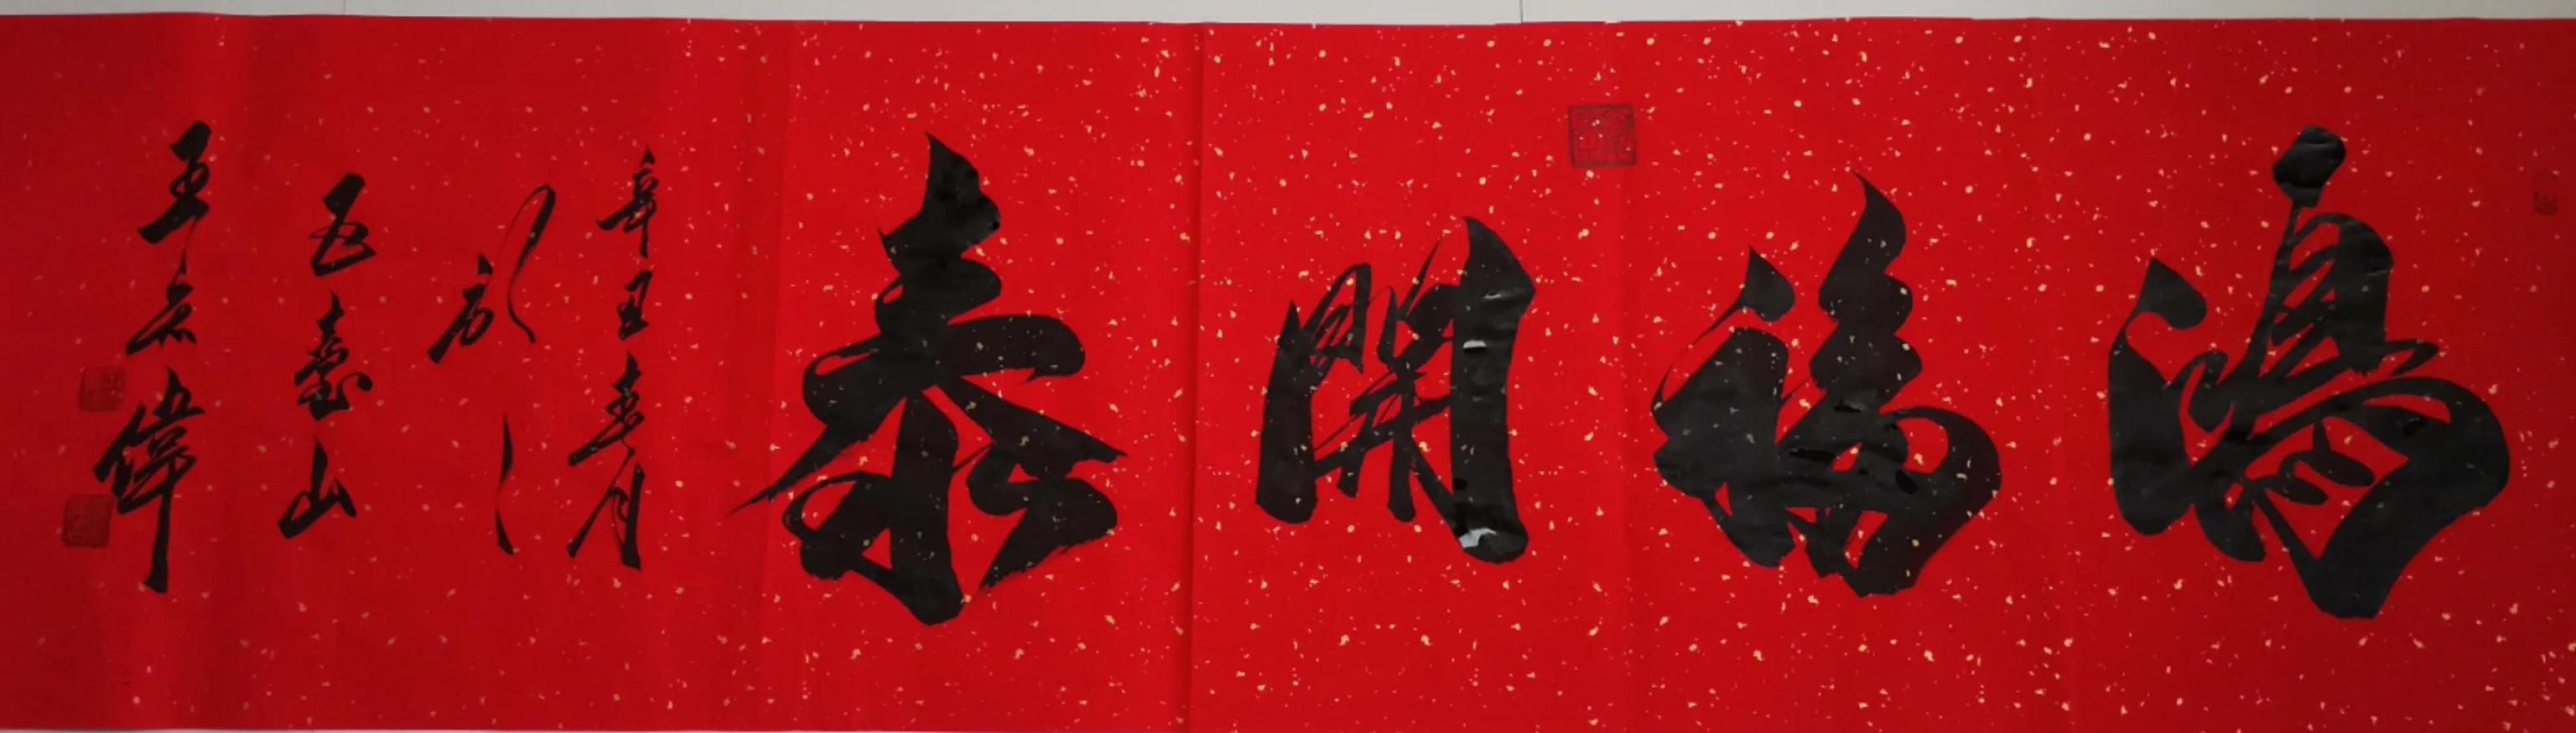 鴻福開泰
辛丑春月
於
五臺山
王志偉